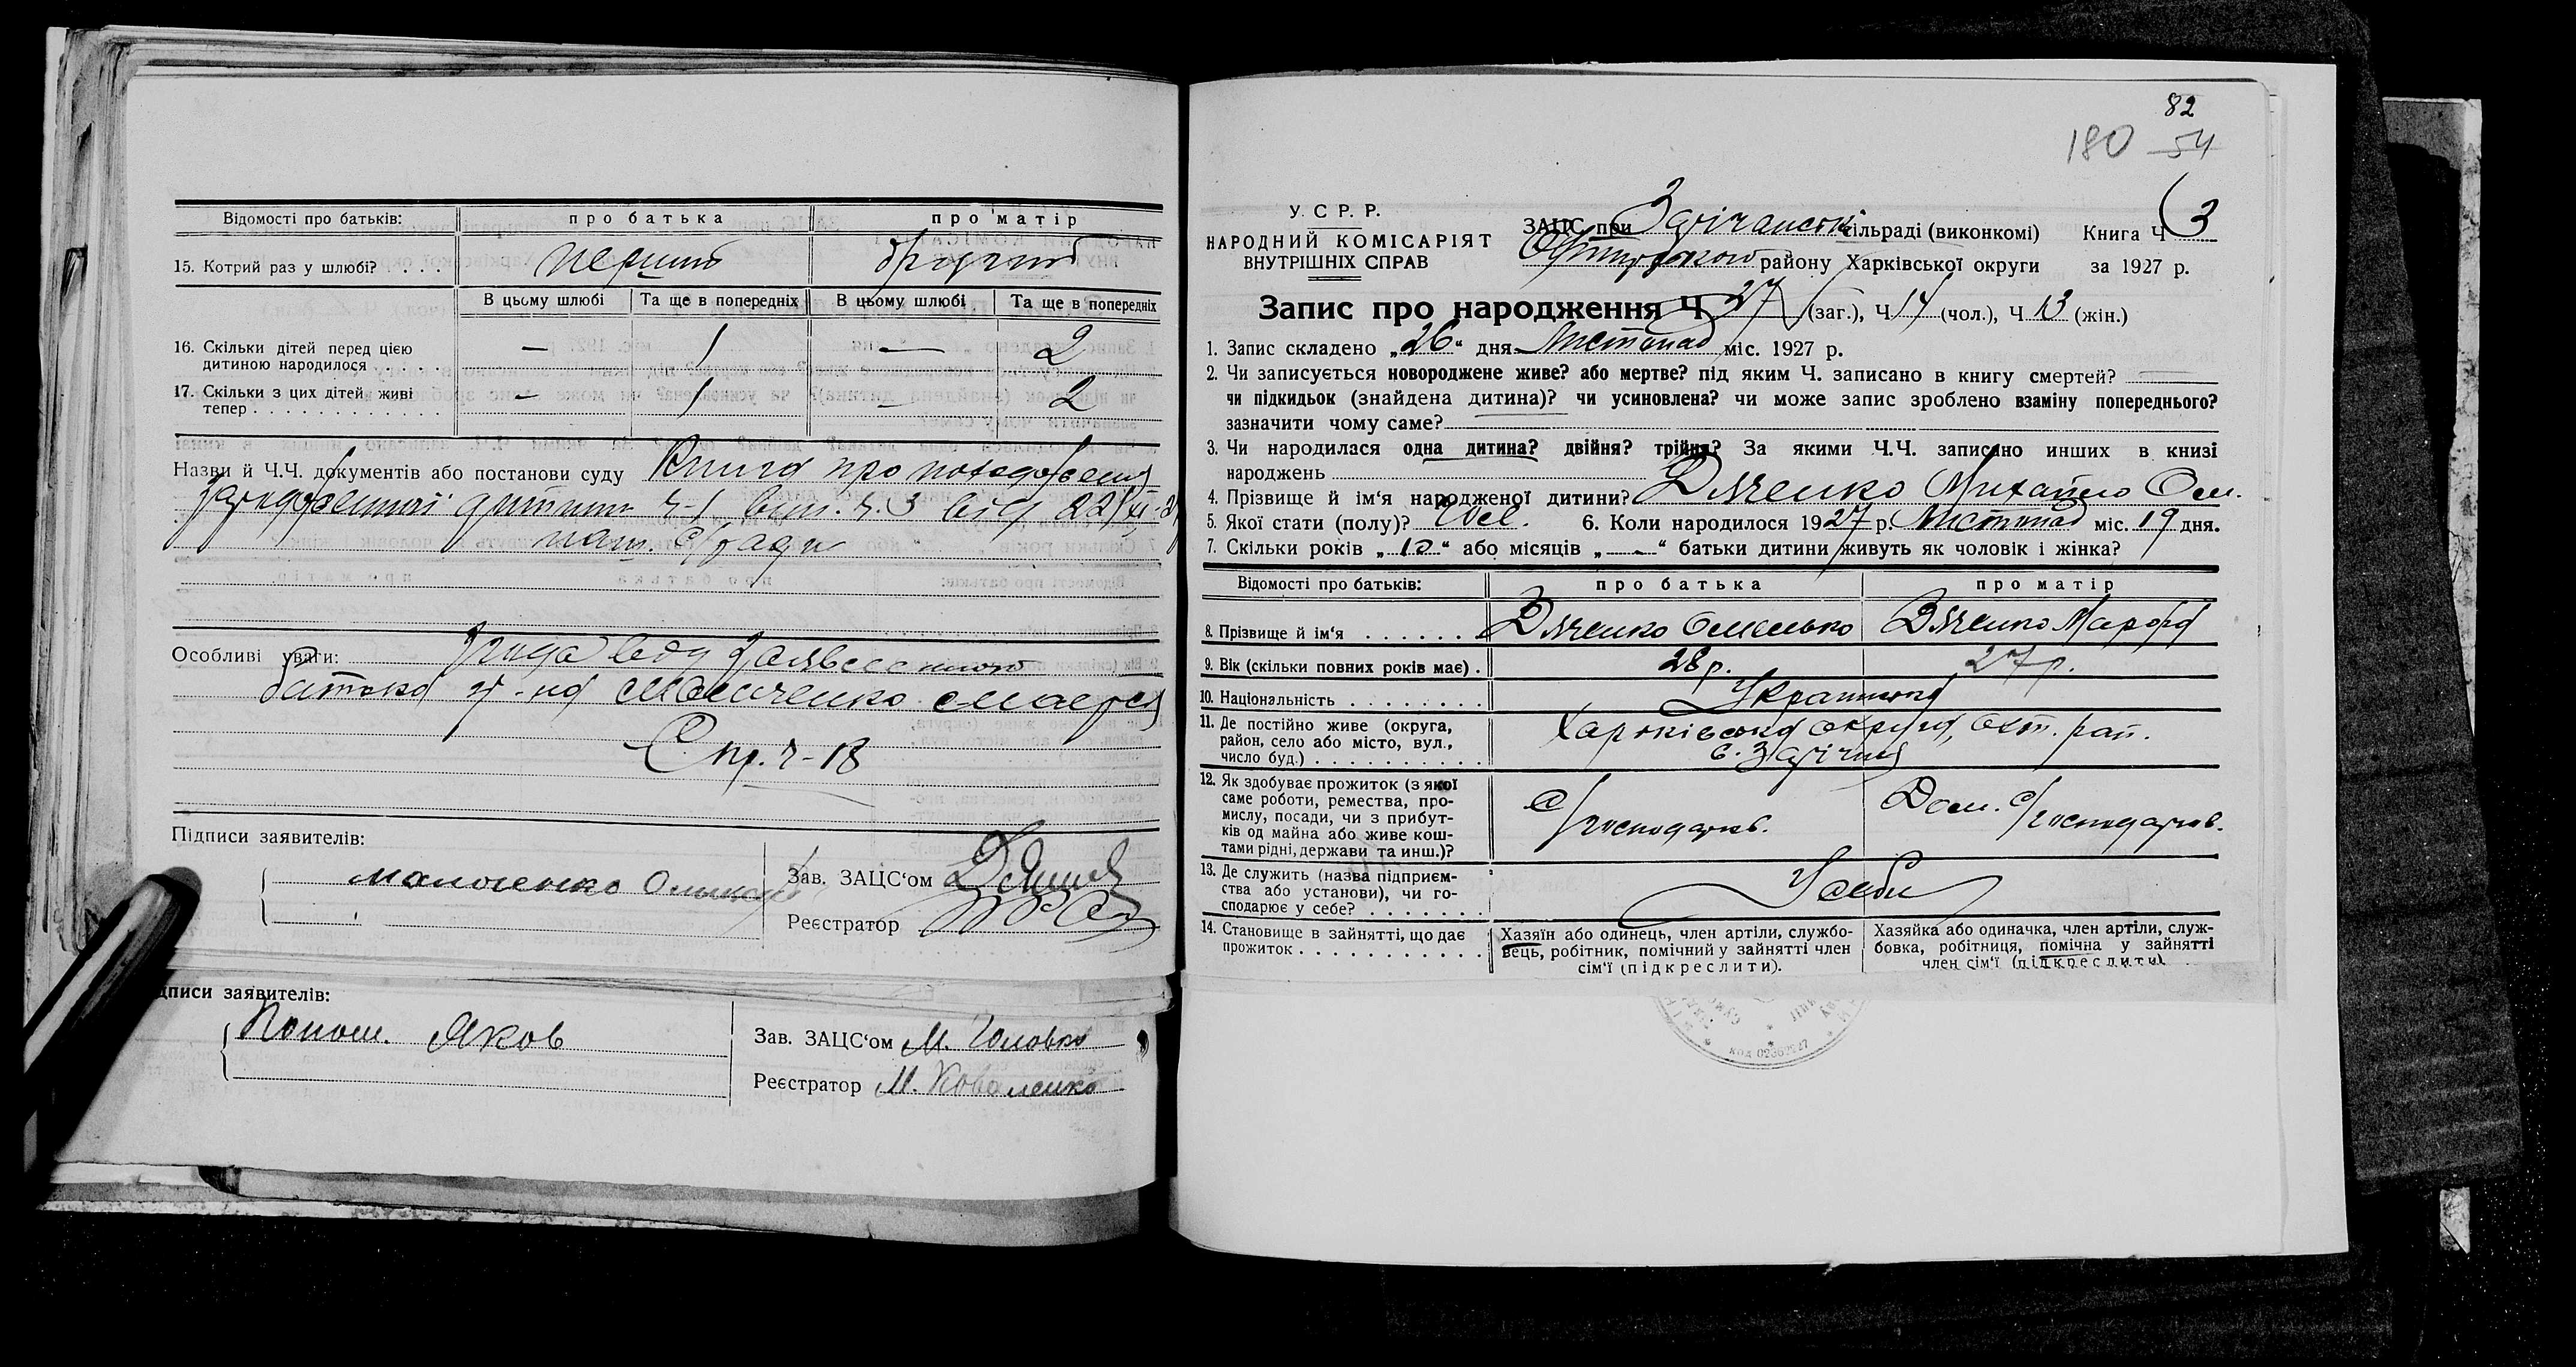 Відомості про батьків: про батька про матір
15. Котрий раз у шлюбі? . . . перший другий
В цьому шлюбі Та ще в попередніх В цьому шлюбі Та ще в попередніх
16. Скільки дітей перед цією
дитиною народилося . . . . — 1 — 2
17. Скільки з цих дітей живі
тепер . . . . . . . . . . . . - 1 - 2
Назви й Ч.Ч. документів або постанови суду Книга про
дитини ч-1 вип. ч. 3 від 22/XI-27
наш. с/ради
Особливі уваги:
батька гр-на
Спр. ч-18
Підписи заявителів:
Зав. ЗАЦС‘ом
Реєстратор
дписи заявителів:
Яков
Зав. ЗАЦС‘ом М. Головко
Реєстратор М. Коваленко
82
180 54
У. С. Р. Р.
НАРОДНИЙ КОМІСАРІЯТ
ВНУТРІШНІХ СПРАВ
ЗАЦС при Зарічанській сільраді (виконкомі) Книга Ч 3
Охтирського району Харківської округи за 1927 р.
Запис про народження Ч 27 (заг.), Ч 14 (чол.), Ч 13 (жін.)
1. Запис складено „26“ дня Листопад міс. 1927 р.
2. Чи записується новороджене живе? або мертве? під яким Ч. записано в книгу смертей?
чи підкидьок (знайдена дитина)? чи усиновлена? чи може запис зроблено взаміну попереднього?
зазначити чому саме?
3. Чи народилася одна дитина? двійня? трійня? За якими Ч.Ч. записано инших в книзі
народжень
4. Прізвище й ім‘я народженої дитини? Дяченко Михайло Ом.
5. Якої стати (полу)? Чол. 6. Коли народилося 1927 р. Листопад міс. 19 дня.
7. Скільки років „10“ або місяців „-“ батьки дитини живуть як чоловік і жінка?
Відомості про батьків: про батька про матір
8. Прізвище й ім‘я . . . . . . Дяченко Омелько Дяченко Марфа
9. Вік (скільки повних років має) . 28 р. 27 р.
10. Національність . . . . . . . .
11. Де постійно живе (округа,
район, село або місто, вул.,
число буд.) . . . . . . . . . . . Харківська округа, Охт. рай.
с. Зарічна
12. Як здобуває прожиток (з якої
саме роботи, ремества, про-
мислу, посади, чи з прибут-
ків од майна або живе кош-
тами рідні, держави та инш.)?
с/господарств. Дом. с/господарств.
13. Де служить (назва підприєм-
ства або установи), чи го-
сподарює у себе? . . . . . . . У себе
14. Становище в зайнятті, що дає
прожиток . . . . . . . . . . . .
Хазяїн або одинець, член артіли, службо-
вець, робітник, помічний у зайнятті член
сім‘ї (підкреслити).
Хазяйка або одиначка, член артіли, служ-
бовка, робітниця, помічна у зайнятті
член сім‘ї (підкреслити)